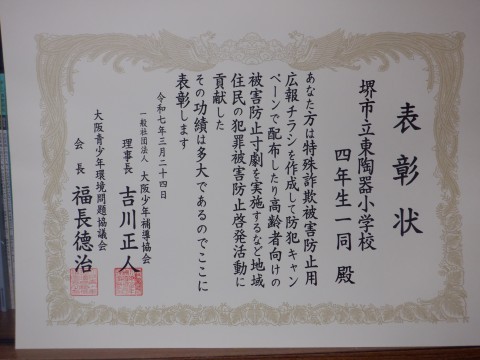 表彰状
堺市立東陶器小学校
四年生一同 殿
あなた方は特殊詐欺被害防止用
広報チラシを作成して防犯キャン
ペーンで配布したり高齢者向けの
被害防止寸劇を実施するなど地域
住民の犯罪被害防止啓発活動に
貢献した
その功績は多大であるのでここに
表彰します
令和七年三月二十四日
一般社団法人 大阪少年補導協会
理事長 吉川正人
大阪青少年環境問題協議会
会長 福長德治